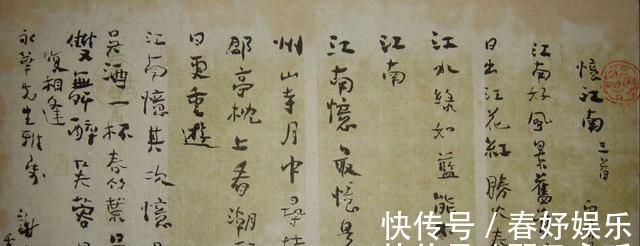 憶江南 三首 白
江南好風景舊
日出江花紅勝
江水綠如藍能不
江南
江南憶最憶是
州山寺月中尋桂
郡亭枕上看潮
日更重遊
江南憶其次憶
吳酒一杯春竹葉
雙舞醉芙蓉
復相逢
永華先生雅屬
謝
快传号 / 春好娱乐